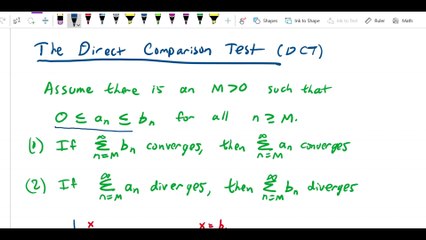 Shapes
Ink to Shape
Ink to Text
Math
The Direct Comparison Test (DCT)
Assume there is an M>0 such that
0 ≤ aₙ ≤ bₙ for all n ≥ M.
(1) If ∑_{n=M}^{∞} bₙ converges, then ∑_{n=M}^{∞} aₙ converges
(2) If ∑_{n=M}^{∞} aₙ diverges, then ∑_{n=M}^{∞} bₙ diverges